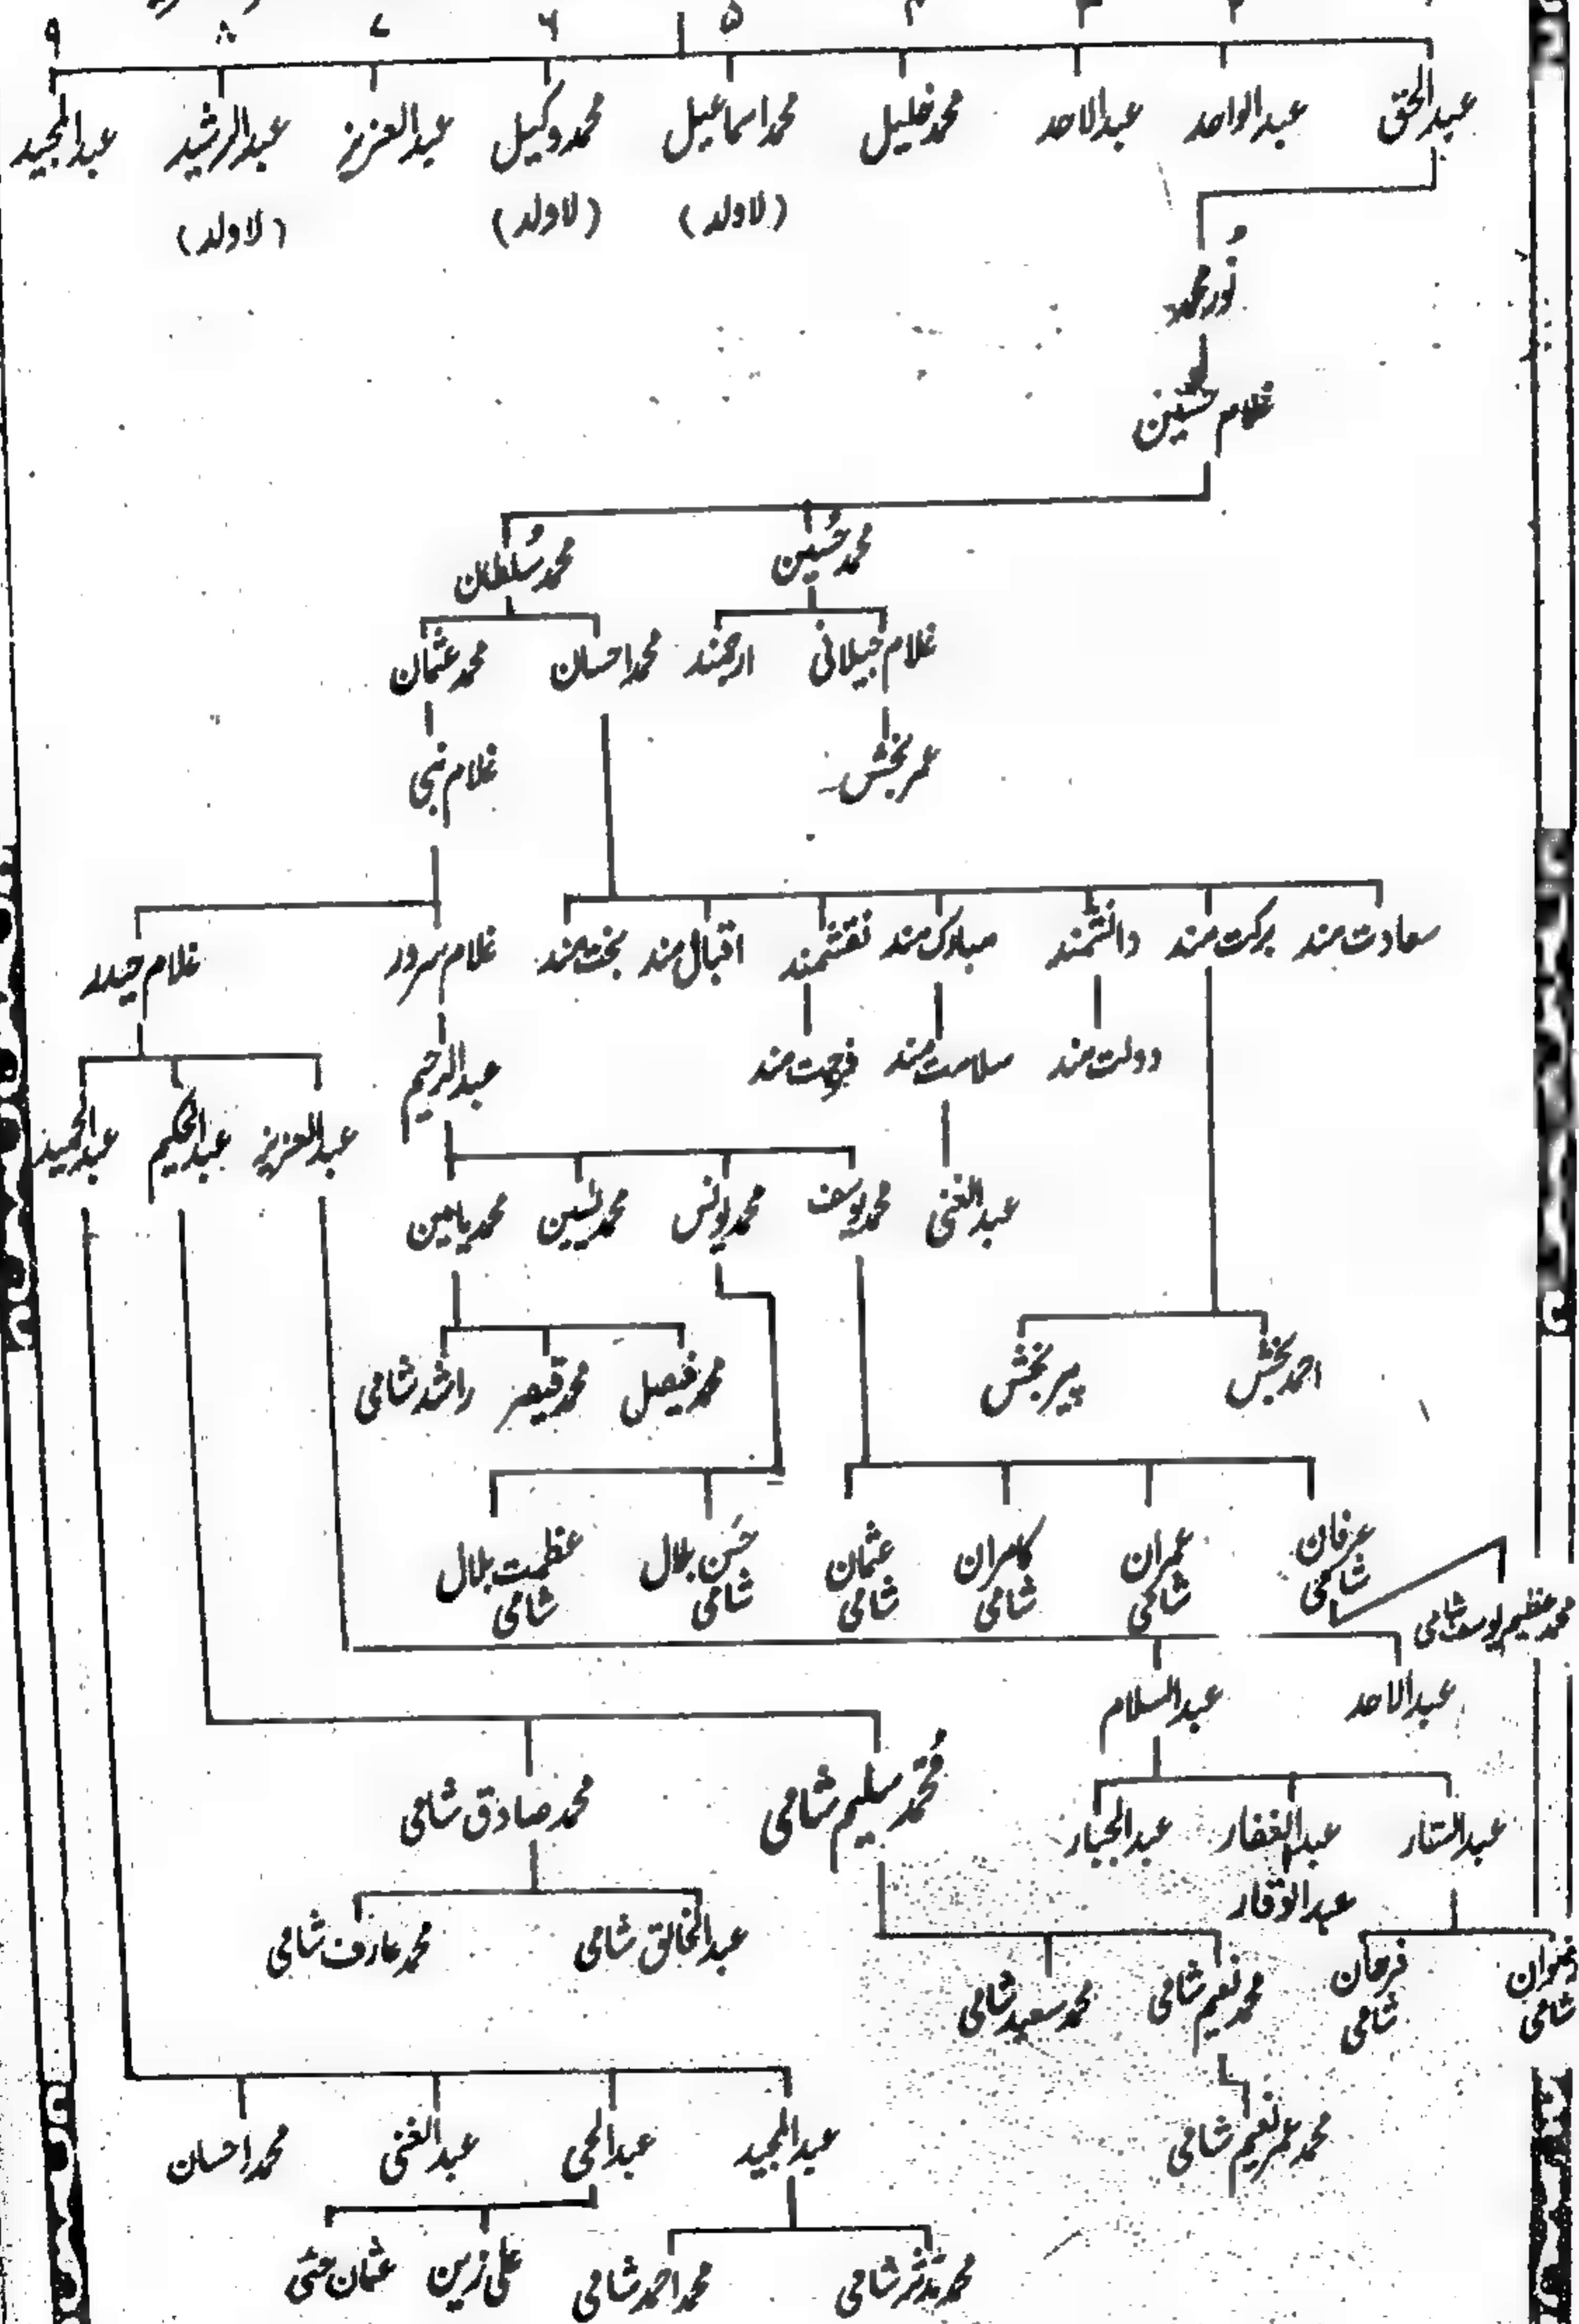 ۵ ۶ ۷ ۸ ۹
عبدالحق عبدالواحد عبدالاحد محمد خلیل محمد اسماعیل محمد وکیل عبدالعزیز عبدالرشید عبدالمجید
(لاولد) (لاولد) (لاولد)
نور محمد
غلام حسین
محمد حُسین محمد سُلطان
غلام جیلانی ارجمند محمد احسان محمد عثمان
عمر بخش غلام نبی
سعادت مند برکت مند دانشمند مبارک مند نقشمند اقبال مند بخت مند غلام سرور غلام حیدر
دولت مند سلامت مند فرحت مند عبدالرحیم
عبدالعزیز عبدالحکیم عبدالحمید
عبدالغنی محمد یوسف محمد یونس محمد یٰسین محمد یامین
احمد بخش پیر بخش محمد فیصل محمد قیصر راشد شامی
عرفان شامی عمران شامی کامران شامی عثمان شامی حسن بلال شامی عظمت بلال شامی
محمد عظیم یوسف شامی
عبدالاحد عبدالسلام
محمد سلیم شامی محمد صادق شامی
عبدالستار عبدالغفار عبدالجبار
عبدالوقار
عبدالخالق شامی محمد عارف شامی
رضوان شامی فرحان شامی محمد نعیم شامی محمد سعید شامی
محمد عمر نعیم شامی
عبدالمجید عبدالحی عبدالغنی محمد احسان
محمد مدثر شامی محمد احمد شامی علی زین عثمان حئی